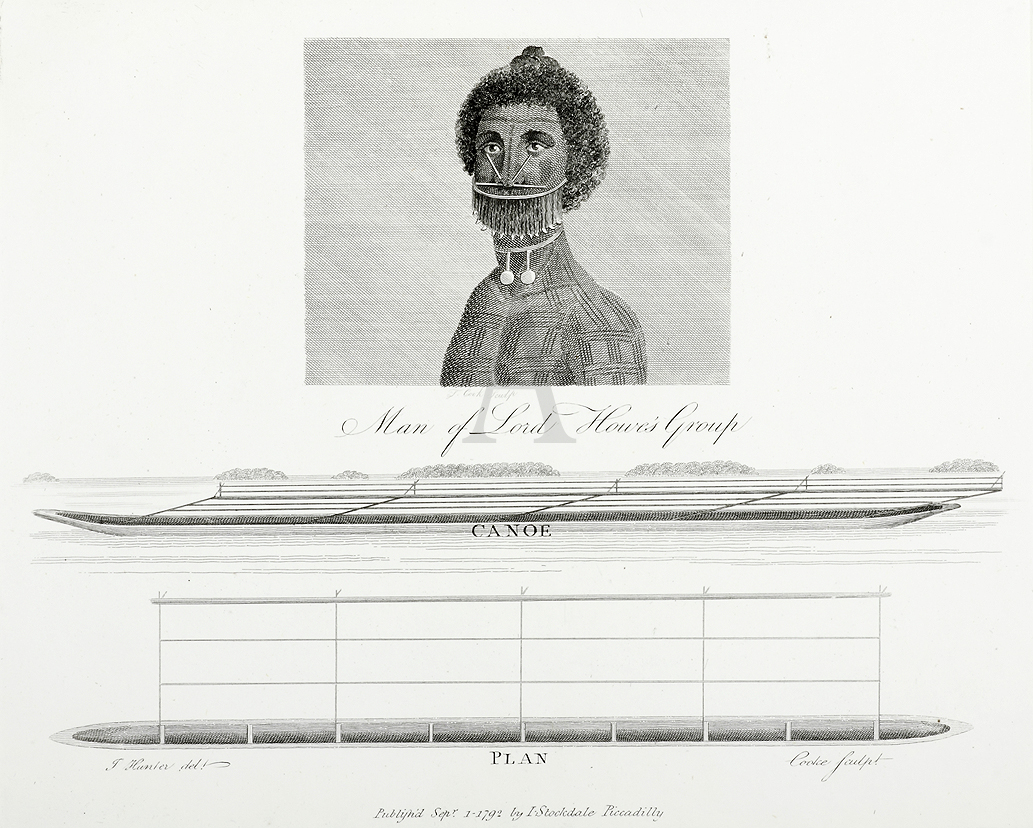 T. Cook sculp
Man of Lord Howe's Group
CANOE
PLAN
J Hunter del.t
Cooke Sculpt
Publish'd Sepr. 1-1792 by I-Stockdale Piccadilly